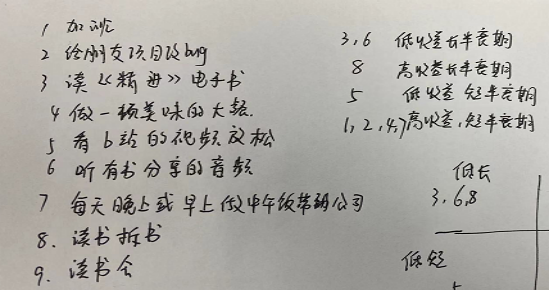 1 加班
2 给朋友项目改bug
3 读《精进》电子书
4 做一顿美味的大餐.
5 看b站的视频放松
6 听有书分享的音频
7 每天晚上或早上做中午饭带到公司
8. 读书拆书
9. 读书会
3,6 低收益长半衰期
8 高收益长半衰期
5 低收益,短半衰期
1,2,4,7高收益,短半衰期
低长
3,6,8
低短
5